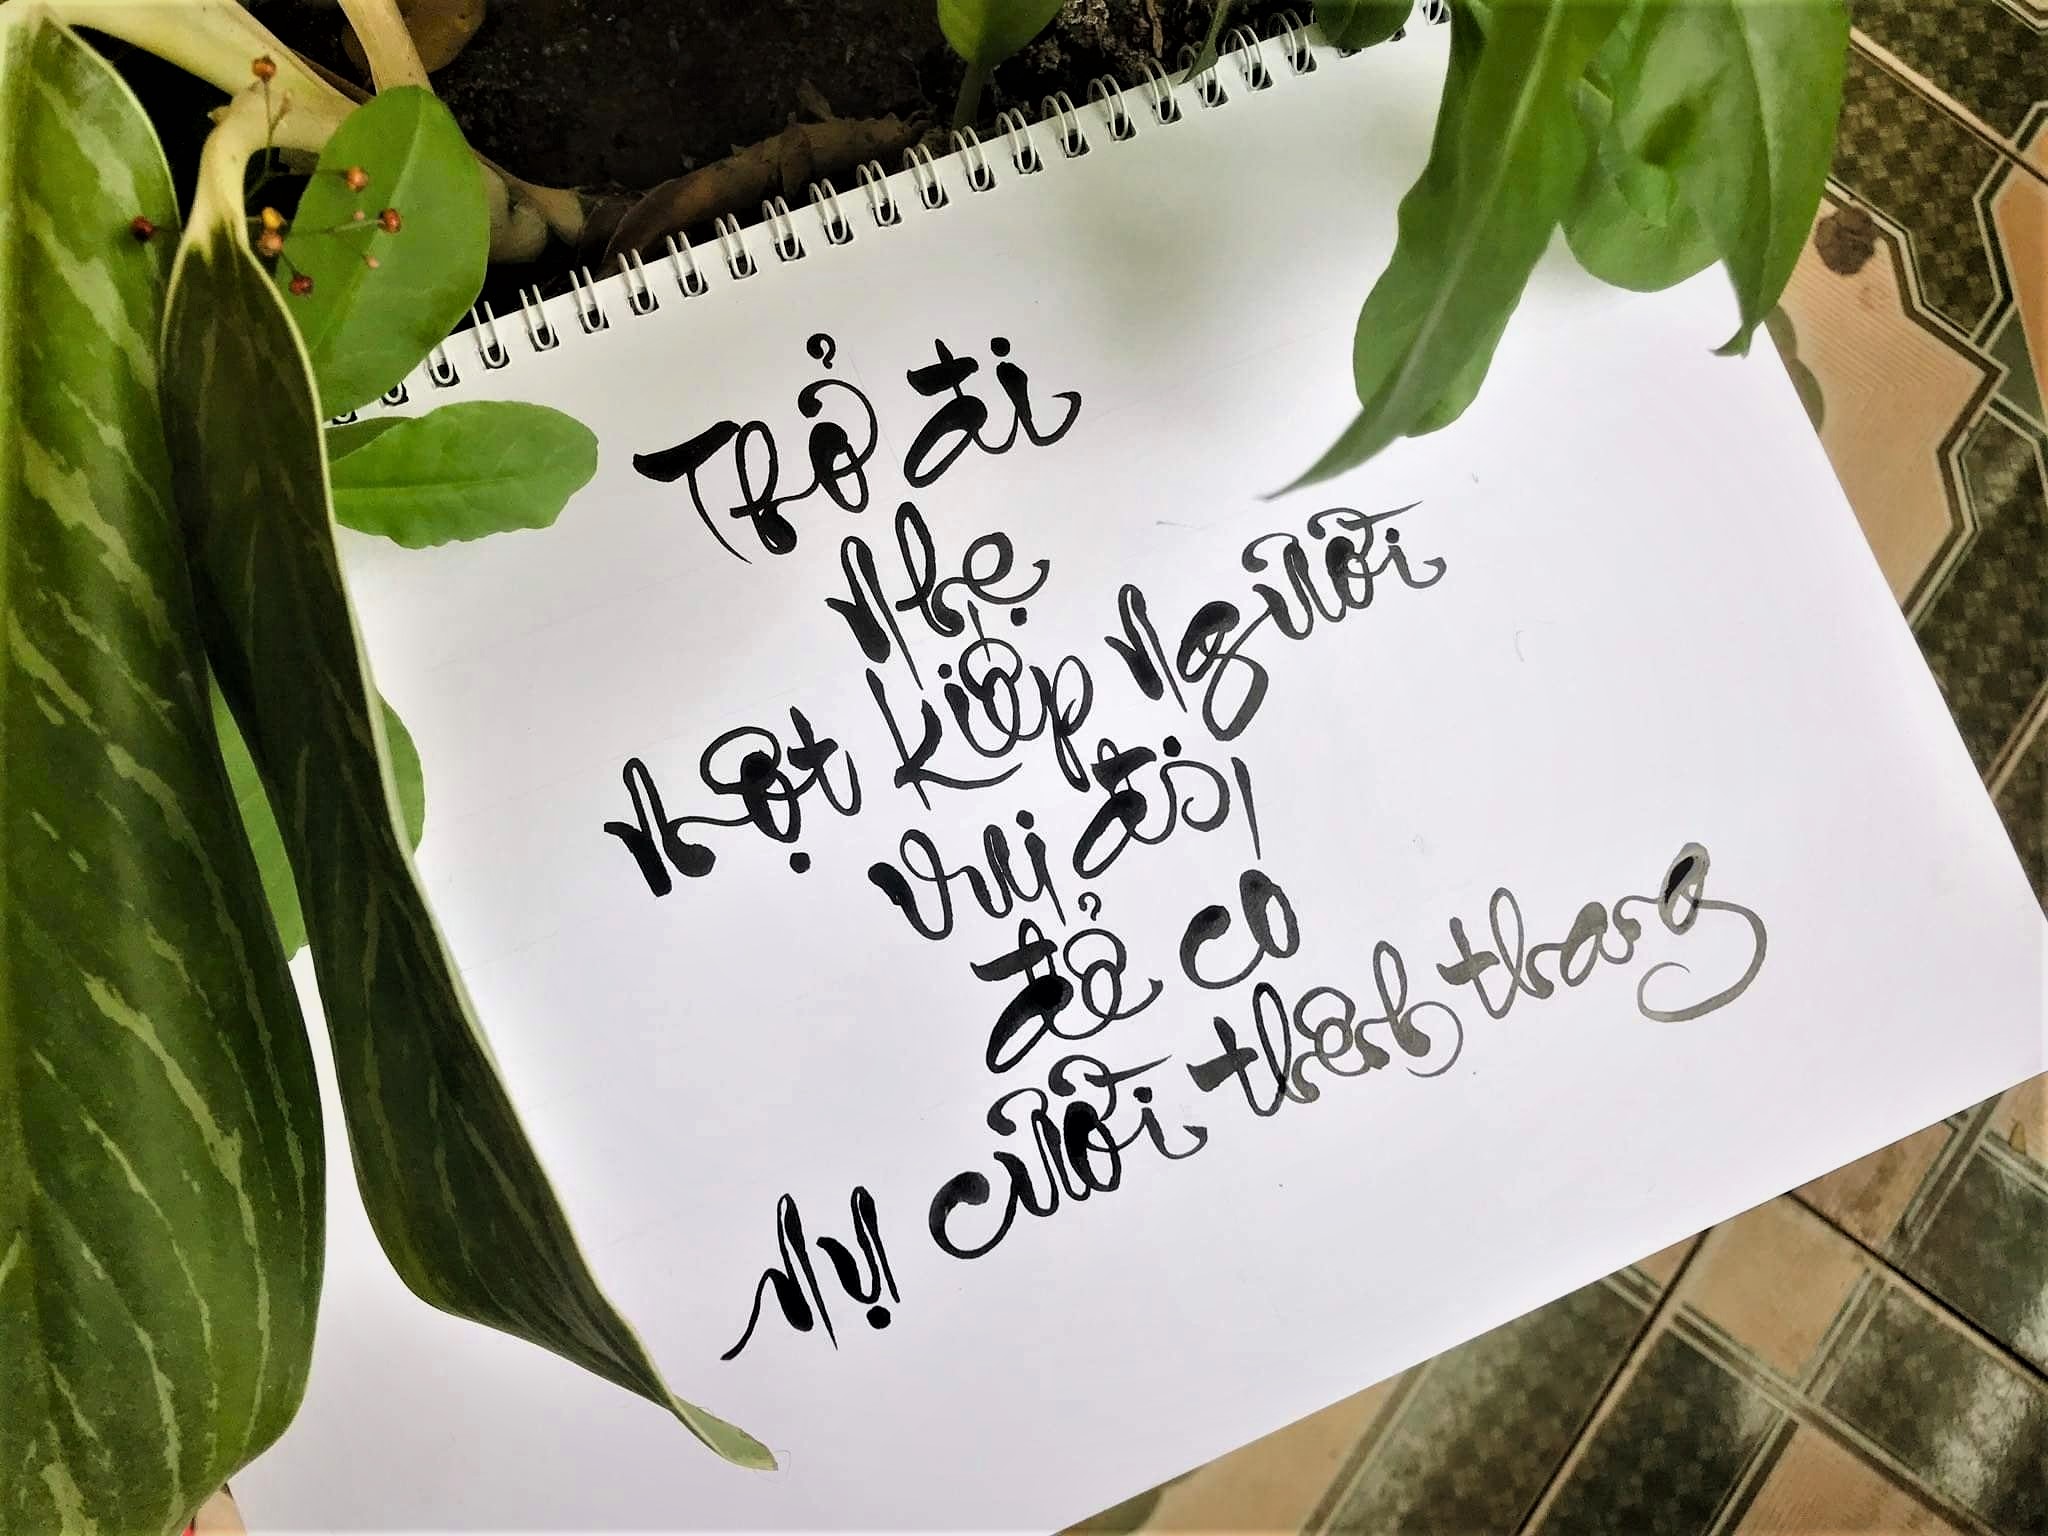 Thở đi
nhẹ
một kiếp người
vui đời
để có
nụ cười thênh thang